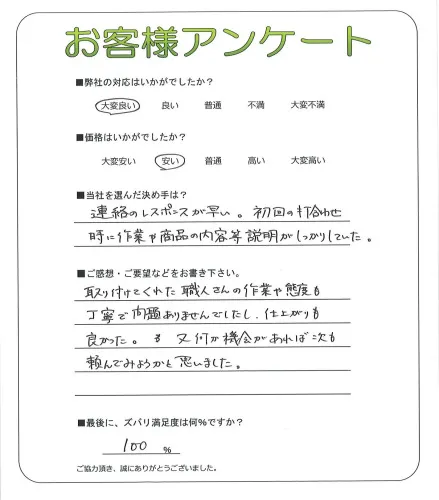 お客様アンケート
■弊社の対応はいかがでしたか?
大変良い 良い 普通 不満 大変不満
■価格はいかがでしたか?
大変安い 安い 普通 高い 大変高い
■当社を選んだ決め手は?
連絡のレスポンスが早い。初回の打合わせ
時に作業や商品の内容等説明がしっかりしていた。
■ご感想・ご要望などをお書き下さい。
取り付けてくれた職人さんの作業や態度も
丁寧で問題ありませんでしたし、仕上がりも
良かった。も 又何か機会があれば次も
頼んでみようかと思いました。
■最後に、ズバリ満足度は何%ですか?
100 %
ご協力頂き、誠にありがとうございました。